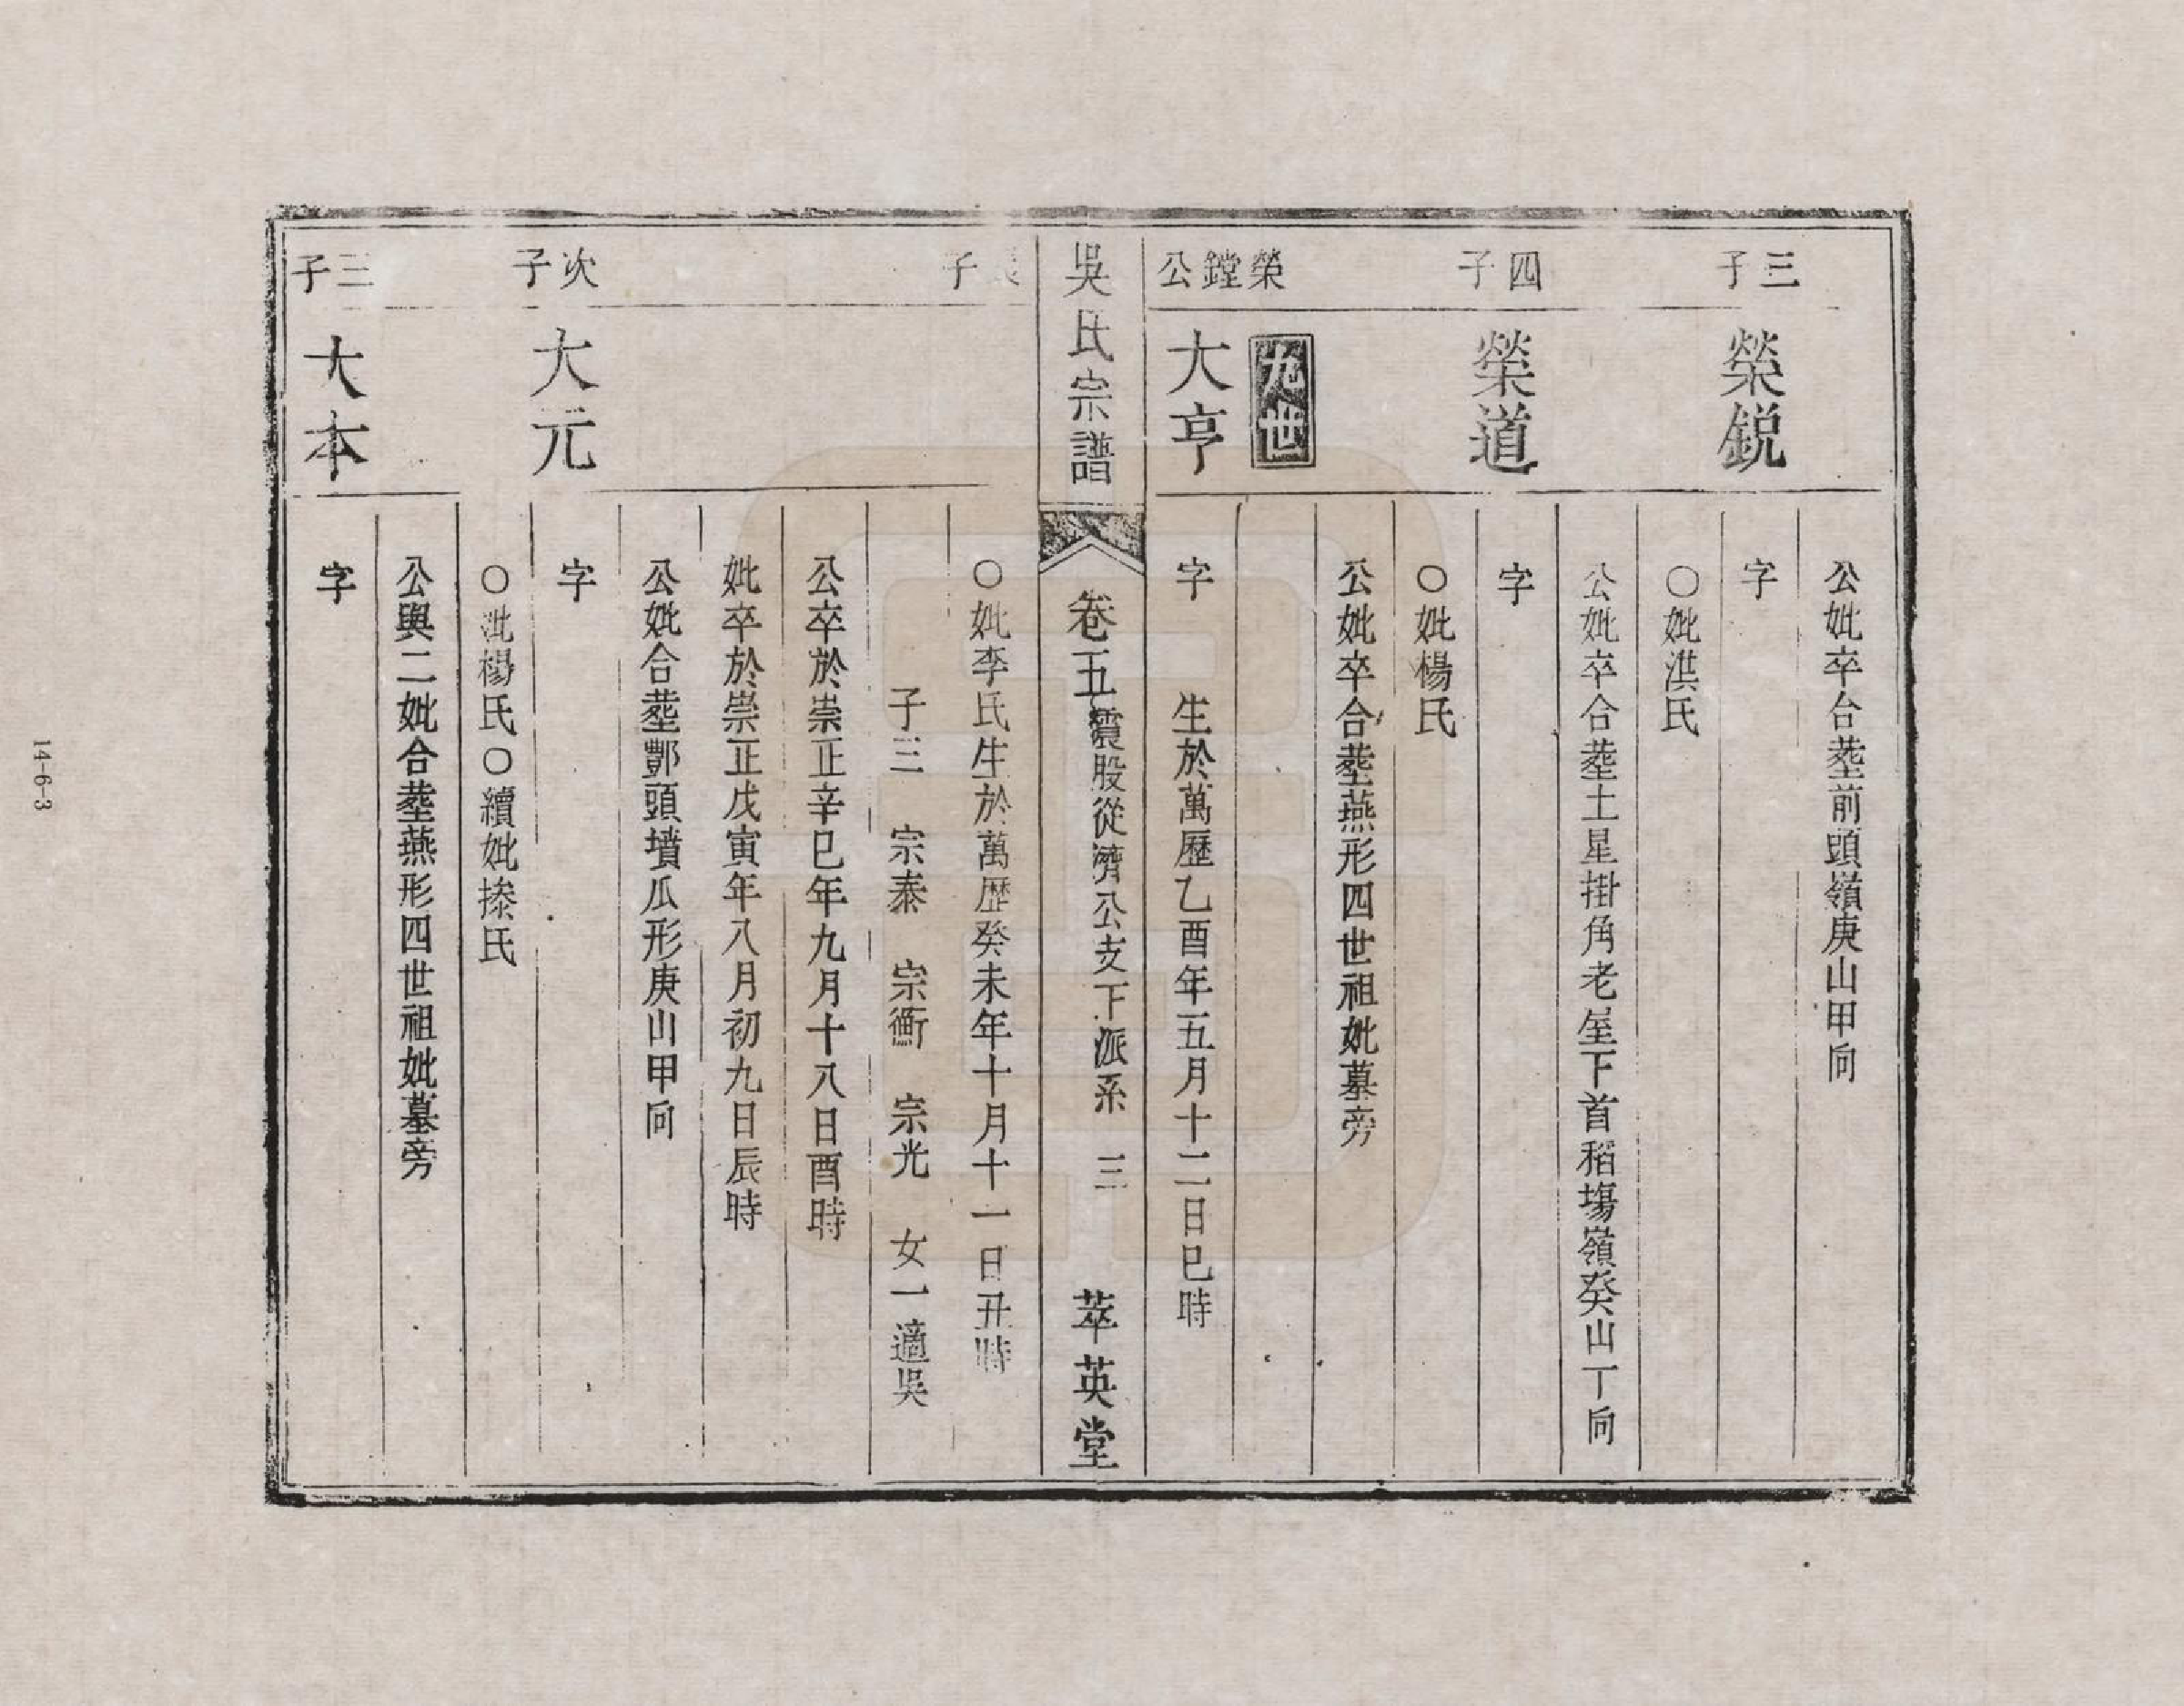 公妣卒合塟前頭嶺庚山甲向
三子
榮鋭
字
○妣洪氏
公妣卒合塟土星掛角老坔下首稻塲嶺癸山丁向
四子
榮道
字
○妣楊氏
公妣卒合塟燕形四世祖妣墓旁
九世
榮鏜公
大亨
字　生於萬歷乙酉年五月十二日巳時
吳氏宗譜
卷五震股從濟公支下派系　三
萃英堂
長子
○妣李氏生於萬歷癸未年十月十一日丑時
子三　宗泰　宗衡　宗光　女一適吳
公卒於崇正辛巳年九月十八日酉時
妣卒於崇正戊寅年八月初九日辰時
公妣合塟鄷頭墳瓜形庚山甲向
次子
大元
字
○妣楊氏○續妣搽氏
公與二妣合塟燕形四世祖妣墓旁
三子
大本
字
14-6-3